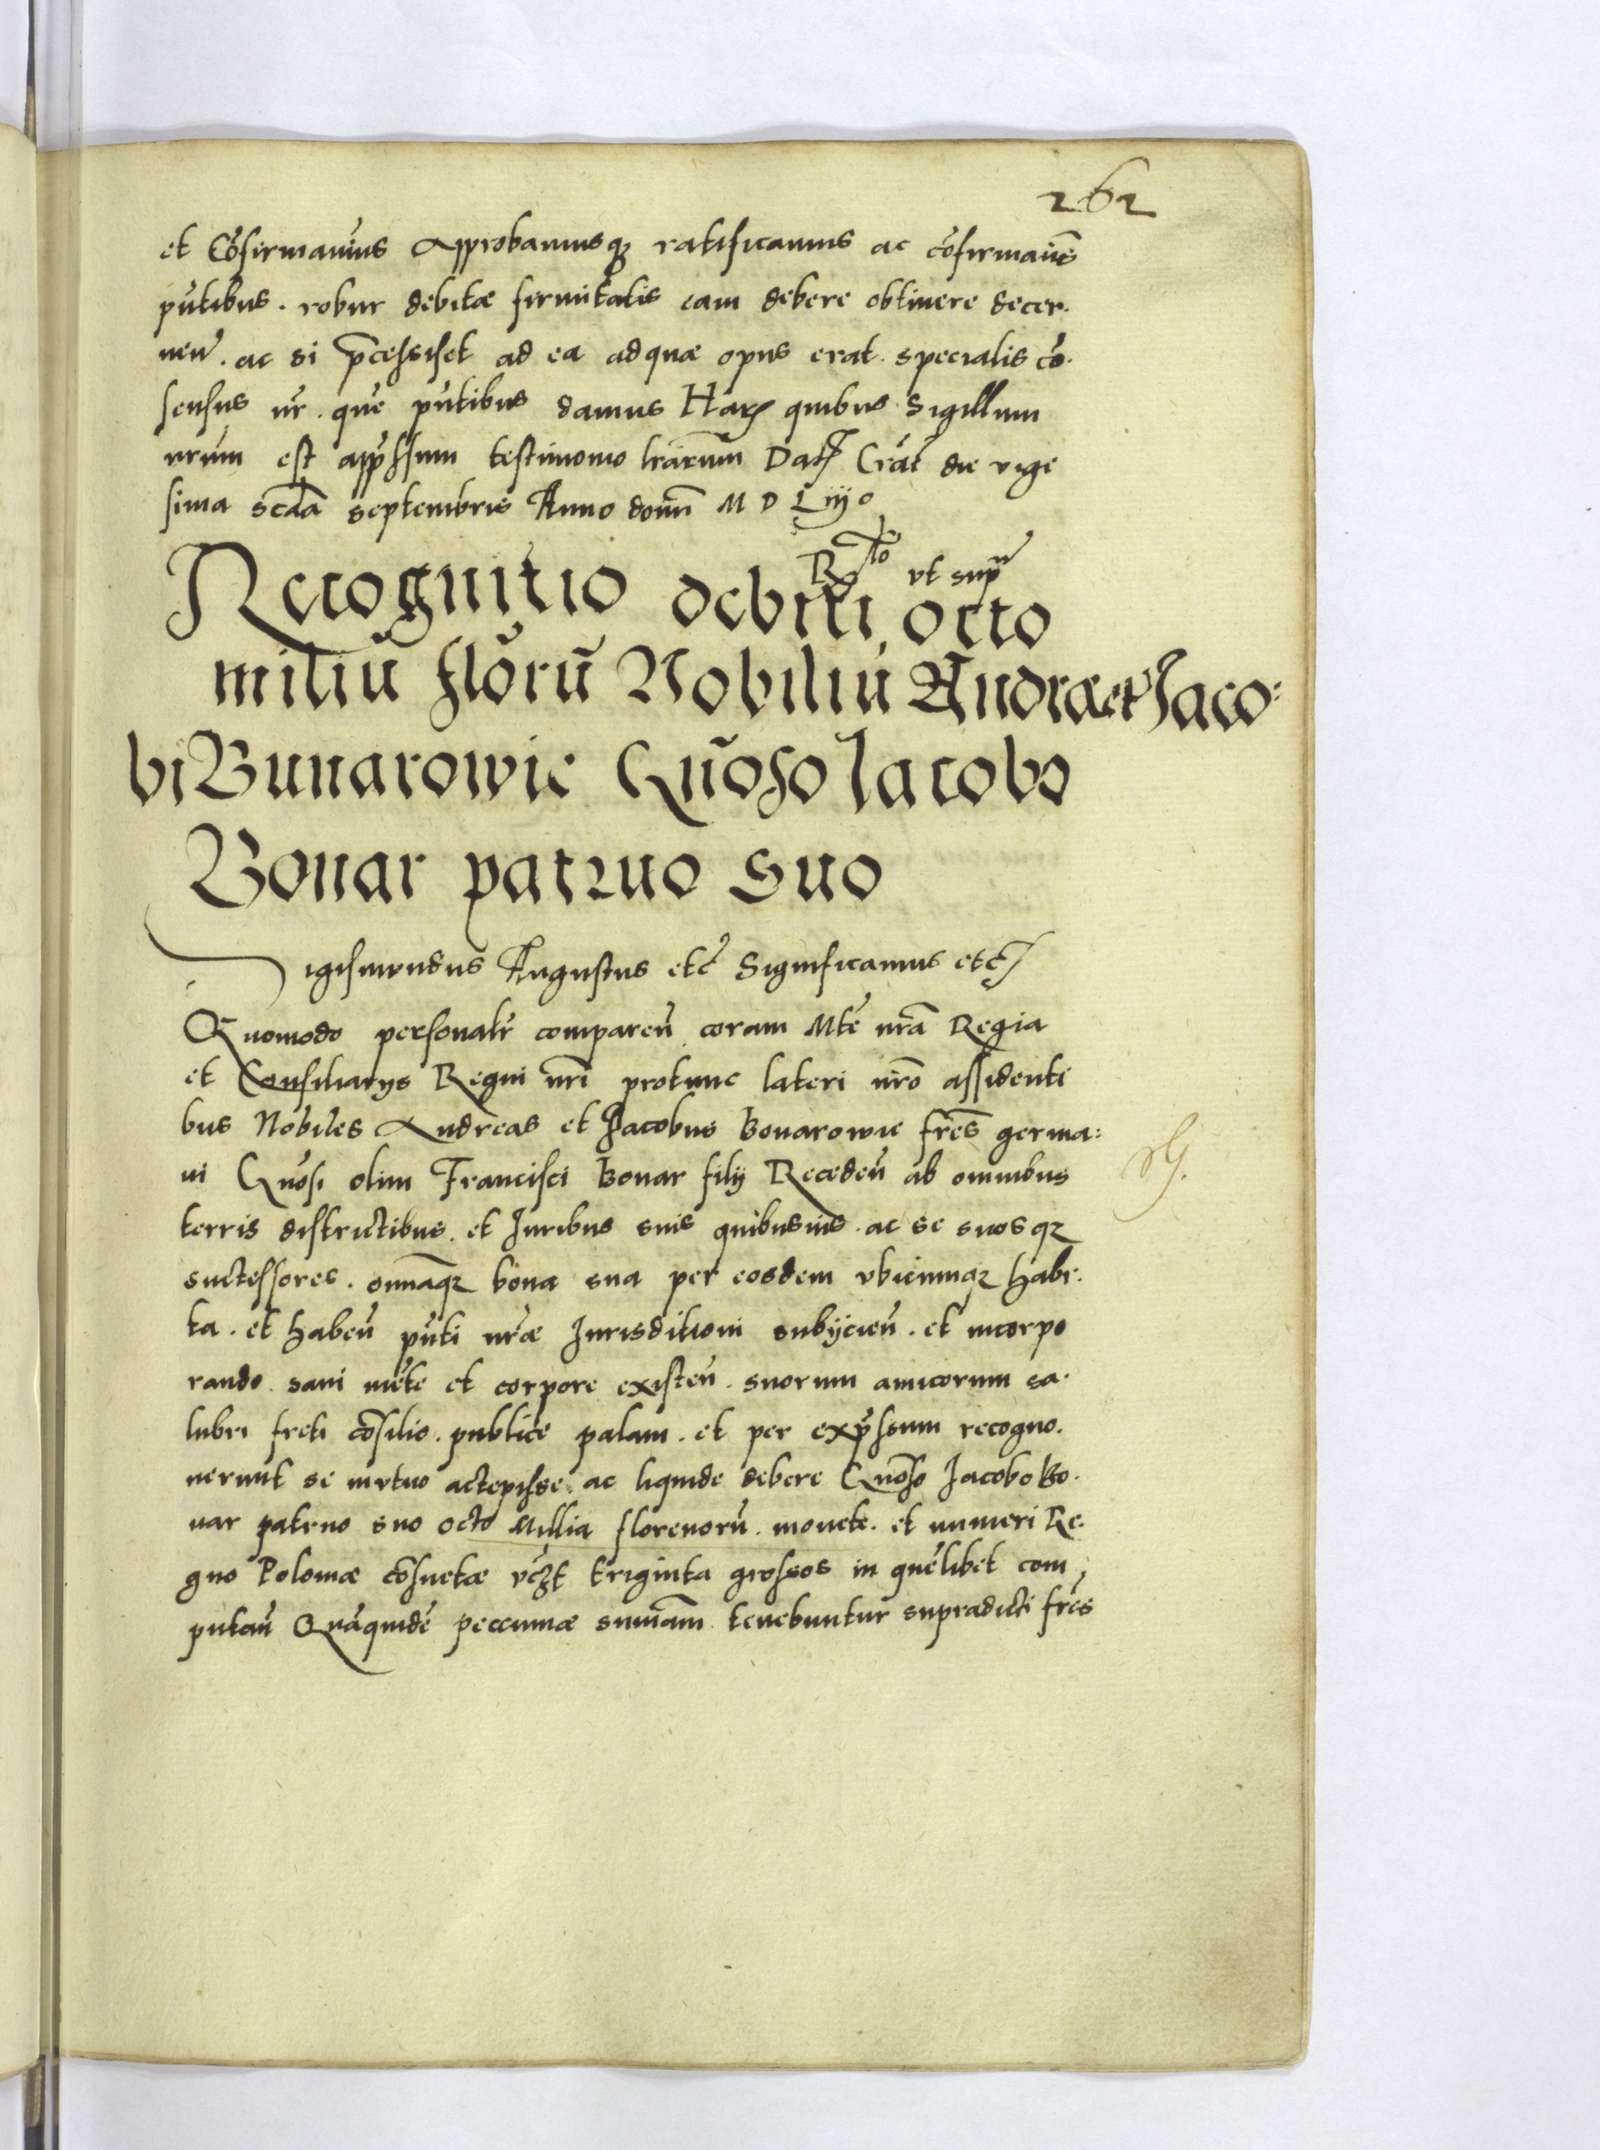 262
et Cõfirmavĩus Approbamusqꝫ ratificamus ac cõfirmaũs
pũtibus. robur debitæ firmitatis eam debere obtinere decer.
neñ. ac si p̃cessisset ad ea ad quæ opus erat. specialis cõ.
sensus nr̃. quẽ pũtibus damus Harꝫ quibus Sigillum
nrũm est app̃ssum testimonio lr̃arum Datꝫ Crac̃ die vige
sima scd̃a septembris Anno domĩ M D Liijo
Rᵗᵒ vt supᵃ
Recognitio debiti octo
miliũ flõrũ Nobiliũ Andræ et Jaco:
bi Bunarowic Gñoso Jacobo
Bonar patruo suo
Sigismundus Augustus etc̃ Significamus etcꝫ
Quomodo personalr̃ compareñ coram Mtẽ nr̃a Regia
et Consiliarijs Regni nr̃i protunc lateri nr̃o assidenti
bus Nobiles Andreas et Jacobus Bonarowic fr̃es germa:
ni Gñosi olim Francisci Bonar filij Recedeñ ab omnibus
terris districtibus. et Juribus suis quibusuis. ac se suosqꝫ
successores. omñaqꝫ bona sua per eosdem vbicumqꝫ habi.
ta. et habeñ pũti nr̃æ Jurisditioni subijcieñ. et incorpo
rando. sani mẽte et corpore existeñ. suorum amicorum sa.
lubri freti cõsilio. publice palam. et per exp̃ssum recogno.
uerunt se mutuo accepisse. ac liquide debere Gñoso Jacobo Bo.
nar patruo suo octo Millia florenorũ. monete. et numeri Re.
gno Poloniæ cõsuetæ vcꝫt triginta grossos in quẽlibet com
putañ Quãquidẽ peccuniæ summam. tenebuntur supradicti fr̃es